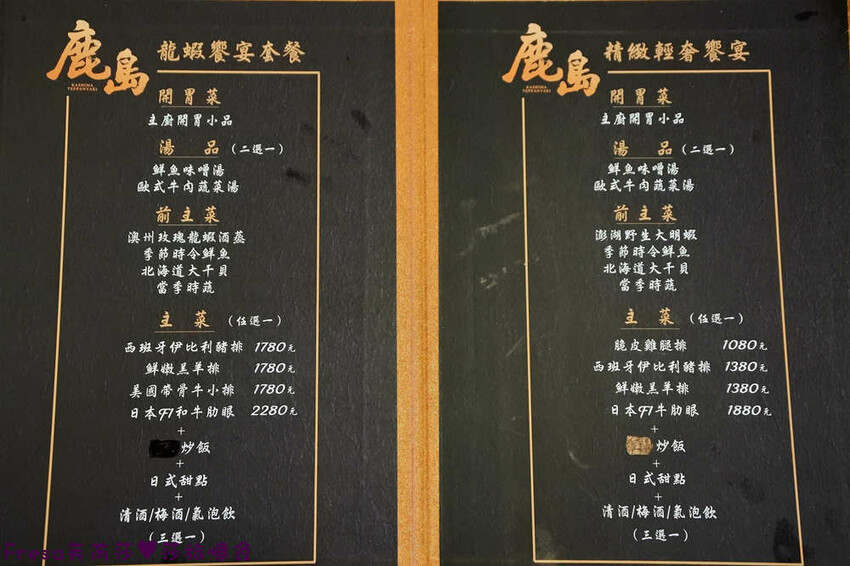 鹿島
KASHIMA
TEPPANYAKI
龍蝦饗宴套餐
開胃菜
主廚開胃小品
湯品（二選一）
鮮魚味噌湯
歐式牛肉蔬菜湯
前主菜
澳州玫瑰龍蝦酒蒸
季節時令鮮魚
北海道大干貝
當季時蔬
主菜（任選一）
西班牙伊比利豬排 1780元
鮮嫩羔羊排 1780元
美國帶骨牛小排 1780元
日本F1和牛肋眼 2280元
+
炒飯
+
日式甜點
+
清酒/梅酒/氣泡飲
（三選一）
鹿島
KASHIMA
TEPPANYAKI
精緻輕奢饗宴
開胃菜
主廚開胃小品
湯品（二選一）
鮮魚味噌湯
歐式牛肉蔬菜湯
前主菜
澎湖野生大明蝦
季節時令鮮魚
北海道大干貝
當季時蔬
主菜（任選一）
脆皮雞腿排 1080元
西班牙伊比利豬排 1380元
鮮嫩羔羊排 1380元
日本F1牛肋眼 1880元
+
炒飯
+
日式甜點
+
清酒/梅酒/氣泡飲
（三選一）